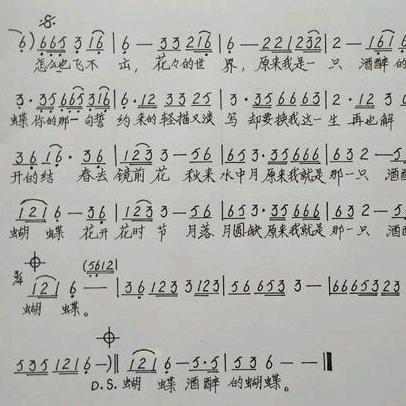 6) 6 6 5 3 1 6 | 6 — 3 3 2 1 6 | 6 — 2 2 1 2 3 2 | 2 — 1 6 1
怎么也飞不 出，花々的世 界，原来我是一 只 酒醉的
3 · 3 5 6 6 5 3 1 6 | 6 · 1 2 3 3 2 5 | 3 · 3 5 6 6 6 6 3 | 2 · 1 2 3
蝶 你的那一句誓 约 来的轻描又淡 写 却要换我这一 生 再也解
3 6 1 6 · 3 6 | 1 2 3 3 — 5 6 | 6 5 3 · 3 5 6 6 6 | 6 3 2 — 5
开的结 春去 镜前花 秋来 水中月 原来我就是 那一只 酒
1 2 1 6 — 3 6 | 1 2 3 3 — 5 6 | 6 5 3 · 3 5 6 6 6 | 6 3 2 — 5
蝴 蝶 花开 花时 节 月落 月圆缺 原来我就是 那一只 酒
(5 6 1 2 |
2/4 1 2 1 6 — — | 3 6 1 2 3 3 1 2 3 | 5 6 6 5 3 3 — | 6 6 6 5 3 2 3
蝴 蝶。
5 3 5 1 2 1 6 —) || 1 2 1 6 — 5 · 5 | 5 3 6 — — ||
D.S. 蝴 蝶 酒醉 的蝴蝶。